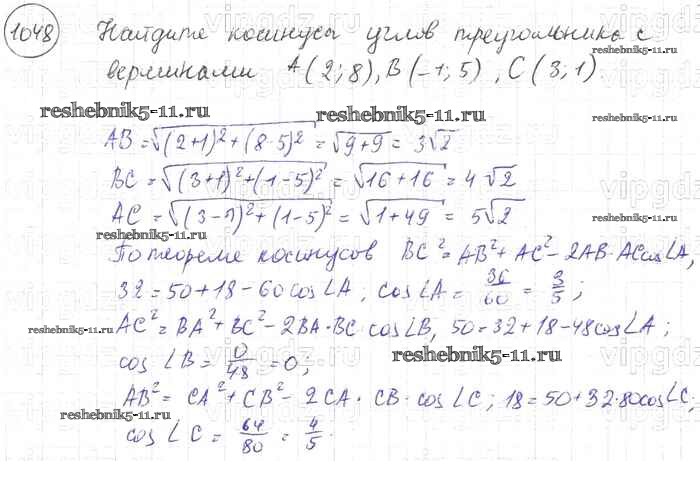 1048 Найдите косинусы углов треугольника с
вершинами A(2;8), B(-1;5), C(3;1)
reshebnik5-11.ru
reshebnik5-11.ru
reshebnik5-11.ru
AB = √(2+1)²+(8-5)² = √9+9 = 3√2
BC = √(3+1)²+(1-5)² = √16+16 = 4√2
reshebnik5-11.ru
AC = √(3-2)²+(1-5)² = √1+49 = 5√2
reshebnik5-11.ru
reshebnik5-11.ru
По теореме косинусов BC² = AB² + AC² - 2AB·AC cos∠A,
32 = 50+18-60cos∠A; cos∠A = 36/60 = 3/5;
reshebnik5-11.ru
AC² = BA² + BC² - 2BA·BC cos∠B, 50 = 32+18-48cos∠A;
reshebnik5-11.ru
cos∠B = 0/48 = 0,
reshebnik5-11.ru
AB² = CA² + CB² - 2CA·CB·cos∠C; 18 = 50+32·80cos∠C,
reshebnik5-11.ru
cos∠C = 64/80 = 4/5
reshebnik5-11.ru